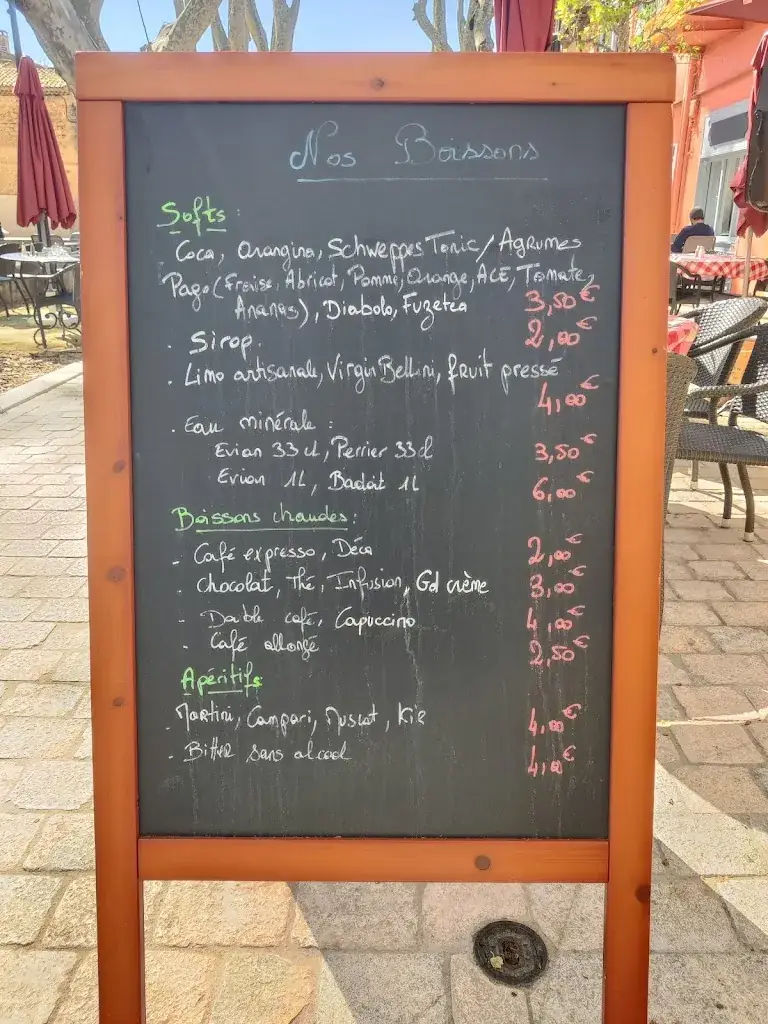 Nos Boissons
Softs :
Coca, Orangina, Schweppes Tonic / Agrumes
Pago (Fraise, Abricot, Pomme, Orange, ACE, Tomate,
Ananas), Diabolo, Fuzetea 3,50€
. Sirop 2,00€
. Limo artisanale, Virgin Bellini, fruit pressé
4,00€
. Eau minérale :
Evian 33 cl, Perrier 33cl 3,50€
Evian 1L, Badoit 1L 6,00€
Boissons chaudes :
- Café expresso, Déca 2,00€
. Chocolat, Thé, Infusion, Gd crème 3,00€
- Double café, Capuccino 4,00€
- Café allongé 2,50€
Apéritifs
. Martini, Campari, Muscat, Kir 4,00€
. Bitter sans alcool 4,00€